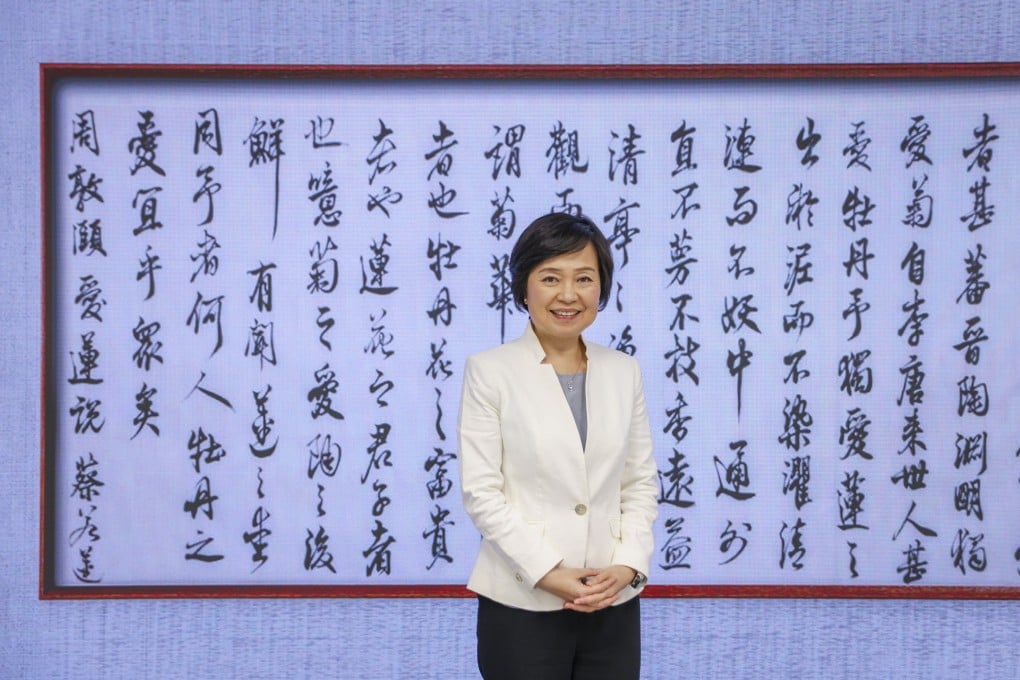 者甚蕃晉陶淵明獨
愛菊自李唐来世人甚
愛牡丹予獨愛蓮之
出淤泥而不染濯清
漣而不妖中通外
直不蔓不枝香遠益
清亭々净
觀而
謂菊華
者也牡丹花之富貴
者也蓮花之君子者
也噫菊之愛陶之後
鮮有聞蓮之生
同予者何人牡丹之
愛宜乎眾矣
周敦頤愛蓮說 蔡若蓮